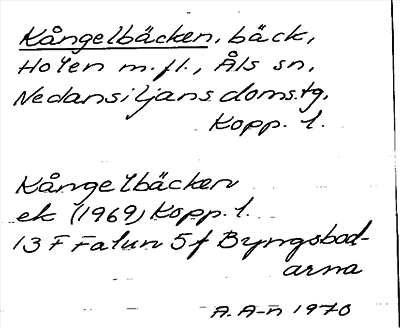 Kångelbäcken, bäck,
Holen m.fl., Åls sn,
Nedansiljans domstg,
Kopp. l.
Kångelbäcken
ek (1969) Kopp. l.
13 F Falun 5f Byngsbod-
arna
A. A-n 1970